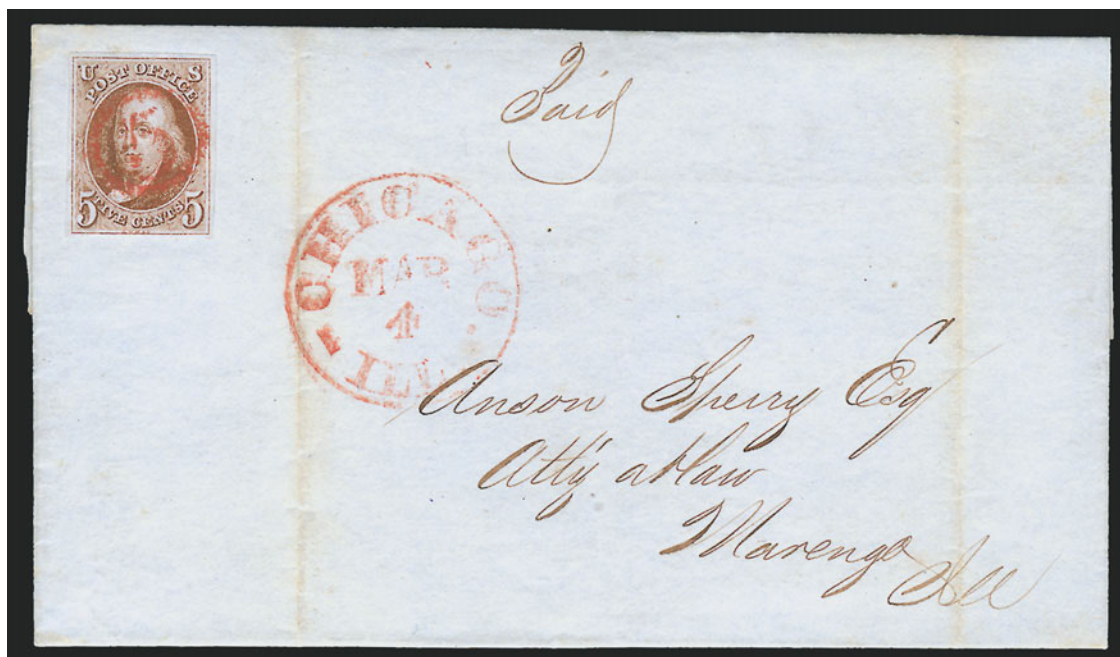 U S
POST OFFICE
5 FIVE CENTS 5
Paid
CHICAGO.
MAR
4
ILL
Anson Sperry Esq
Atty at Law
Marengo
Ill